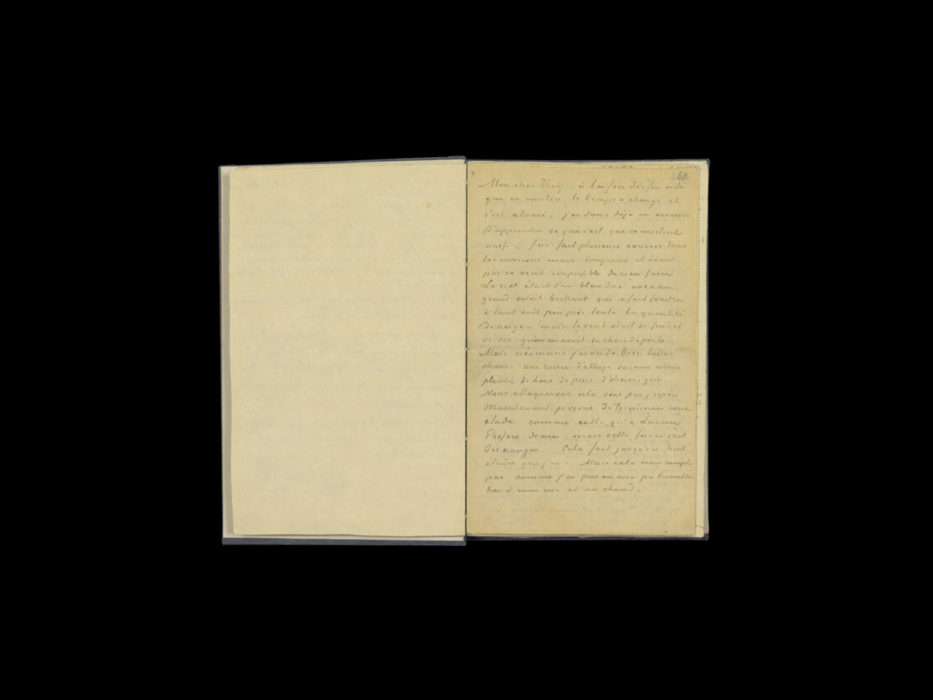 62
Mon cher Theo, à la fin des fins voilà
que ce matin le temps a changé et
s'est adouci – j'ai donc déjà eu occasion
d'apprendre ce que c'est que ce mistral
aussi. J'ai fait plusieurs courses dans
les environs mais toujours il était
par ce vent impossible de rien faire
Le ciel était d'un bleu dur avec un
grand soleil brillant qui a fait fondre
à peu près toute la quantité
de neige – mais le vent était si froid et
si sec qu'on en avait la chair de poule.
Mais néanmoins j'ai vu de bien belles
choses – une ruine d'abbaye sur une colline
plantée de houx de pins d'oliviers gris
Nous attaquerons cela sous peu j'espère
Maintenant je viens de terminer une
étude comme celle qu'a Lucien
de moi mais cette fois ci c'est
des oranges Cela fait jusqu'à huit
études que j'ai – Mais cela ne compte
pas comme j'ai pas encore pu travailler
bien à mon aise et au chaud.